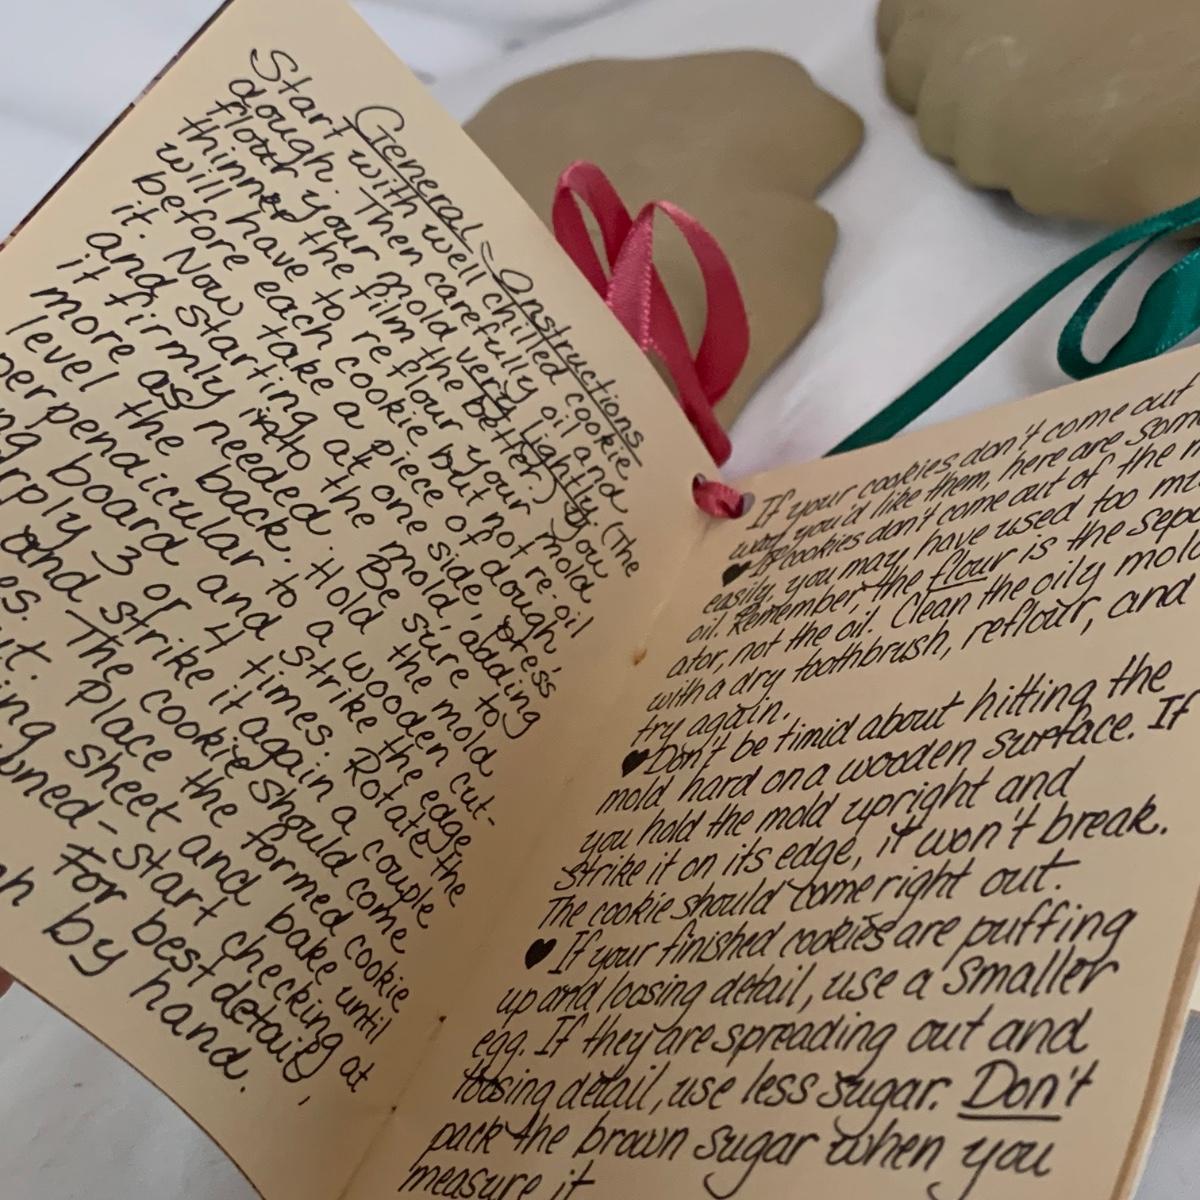 General Instructions
Start with well chilled cookie
dough. Then carefully oil and
flour your mold very lightly. (The
thinner the film the better.) You
will have to re flour your mold
before each cookie but not re-oil
it. Now take a piece of dough
and starting at one side, press
it firmly into the mold, adding
more as needed. Be sure to
level the back. Hold the mold
perpendicular to a wooden cut-
ng board and strike the edge
rply 3 or 4 times. Rotate the
and strike it again a couple
es. The cookie should come
ut. Place the formed cookie
ing sheet and bake until
wned - start checking at
For best detail,
h by hand.
If your cookies don't come out
way you'd like them, here are som
♥ If cookies don't come out of the m
easily, you may have used too mu
oil. Remember, the flour is the sepa
ator, not the oil. Clean the oily mold
with a dry toothbrush, reflour, and
try again.
♥ Don't be timid about hitting the
mold hard on a wooden surface. If
you hold the mold upright and
strike it on its edge, it won't break.
The cookie should come right out.
♥ If your finished cookies are puffing
up and loosing detail, use a smaller
egg. If they are spreading out and
loosing detail, use less sugar. Don't
pack the brown sugar when you
measure it